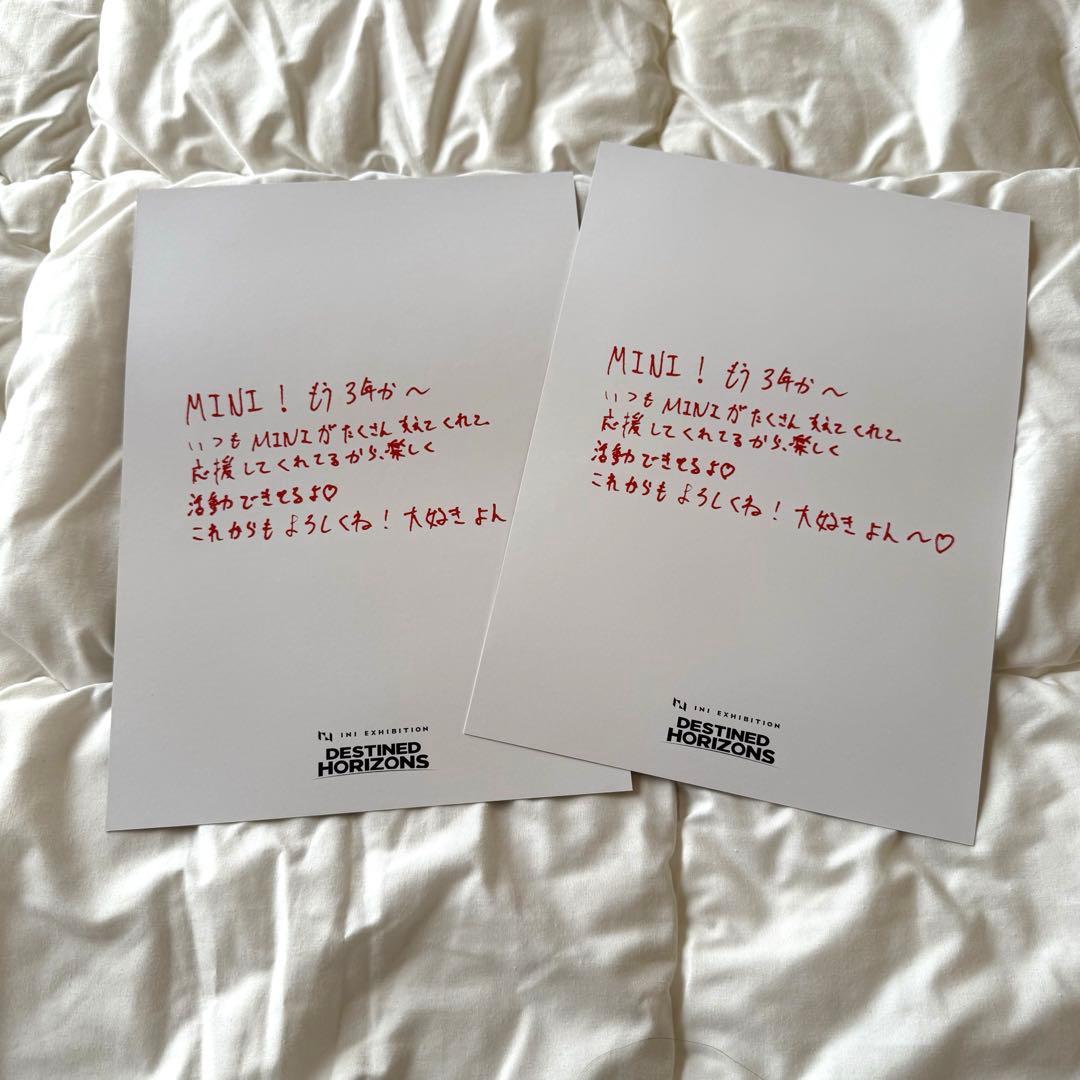 MINI! もう3年か〜
いつもMINIがたくさん支えてくれて
応援してくれてるから、楽しく
活動できてるよ♡
これからもよろしくね! 大好きよん
INI EXHIBITION
DESTINED
HORIZONS
MINI! もう3年か〜
いつもMINIがたくさん支えてくれて
応援してくれてるから、楽しく
活動できてるよ♡
これからもよろしくね! 大好きよん〜♡
INI EXHIBITION
DESTINED
HORIZONS